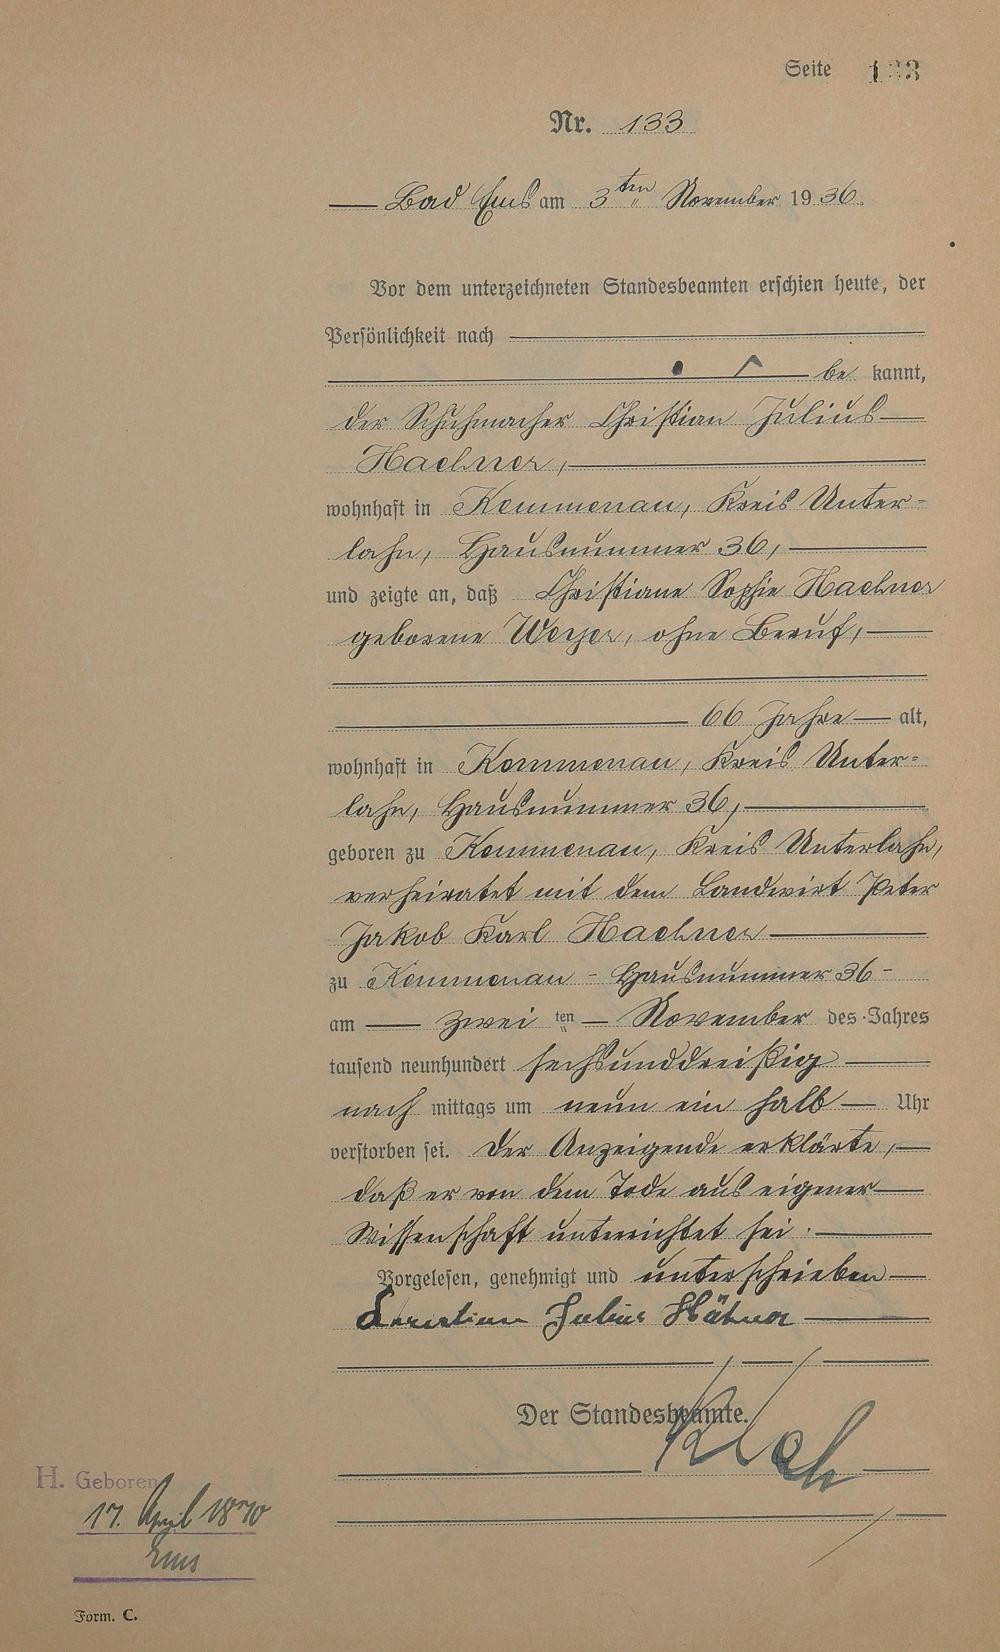 Seite 133
Nr. 133
Bad Ems am 3ten November 1936.
Vor dem unterzeichneten Standesbeamten erschien heute, der
Persönlichkeit nach
be kannt,
der Schuhmacher Christian Julius
Haehner,
wohnhaft in Kemmenau, Kreis Unter-
lahn, Hausnummer 36,
und zeigte an, daß Christiane Sophie Haehner
geborene Weyer, ohne Beruf,
66 Jahre alt,
wohnhaft in Kemmenau, Kreis Unter-
lahn, Hausnummer 36,
geboren zu Kemmenau, Kreis Unterlahn,
verheiratet mit dem Landwirt Peter
Jakob Karl Haehner
zu Kemmenau - Hausnummer 36 -
am zwei ten November des Jahres
tausend neunhundert sechsunddreißig
nach mittags um neun ein halb Uhr
verstorben sei. Der Anzeigende erklärte,
daß er von dem Tode aus eigener
Wissenschaft unterrichtet sei.
Vorgelesen, genehmigt und unterschrieben
Christian Julius Hähner
Der Standesbeamte.
H. Geboren
17. April 1870
Ems
Form. C.